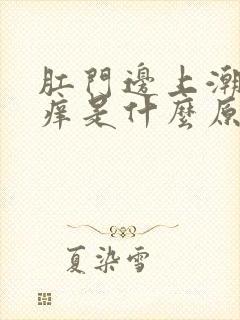 肛門邊上潮
痒是什麼原
夏染雪